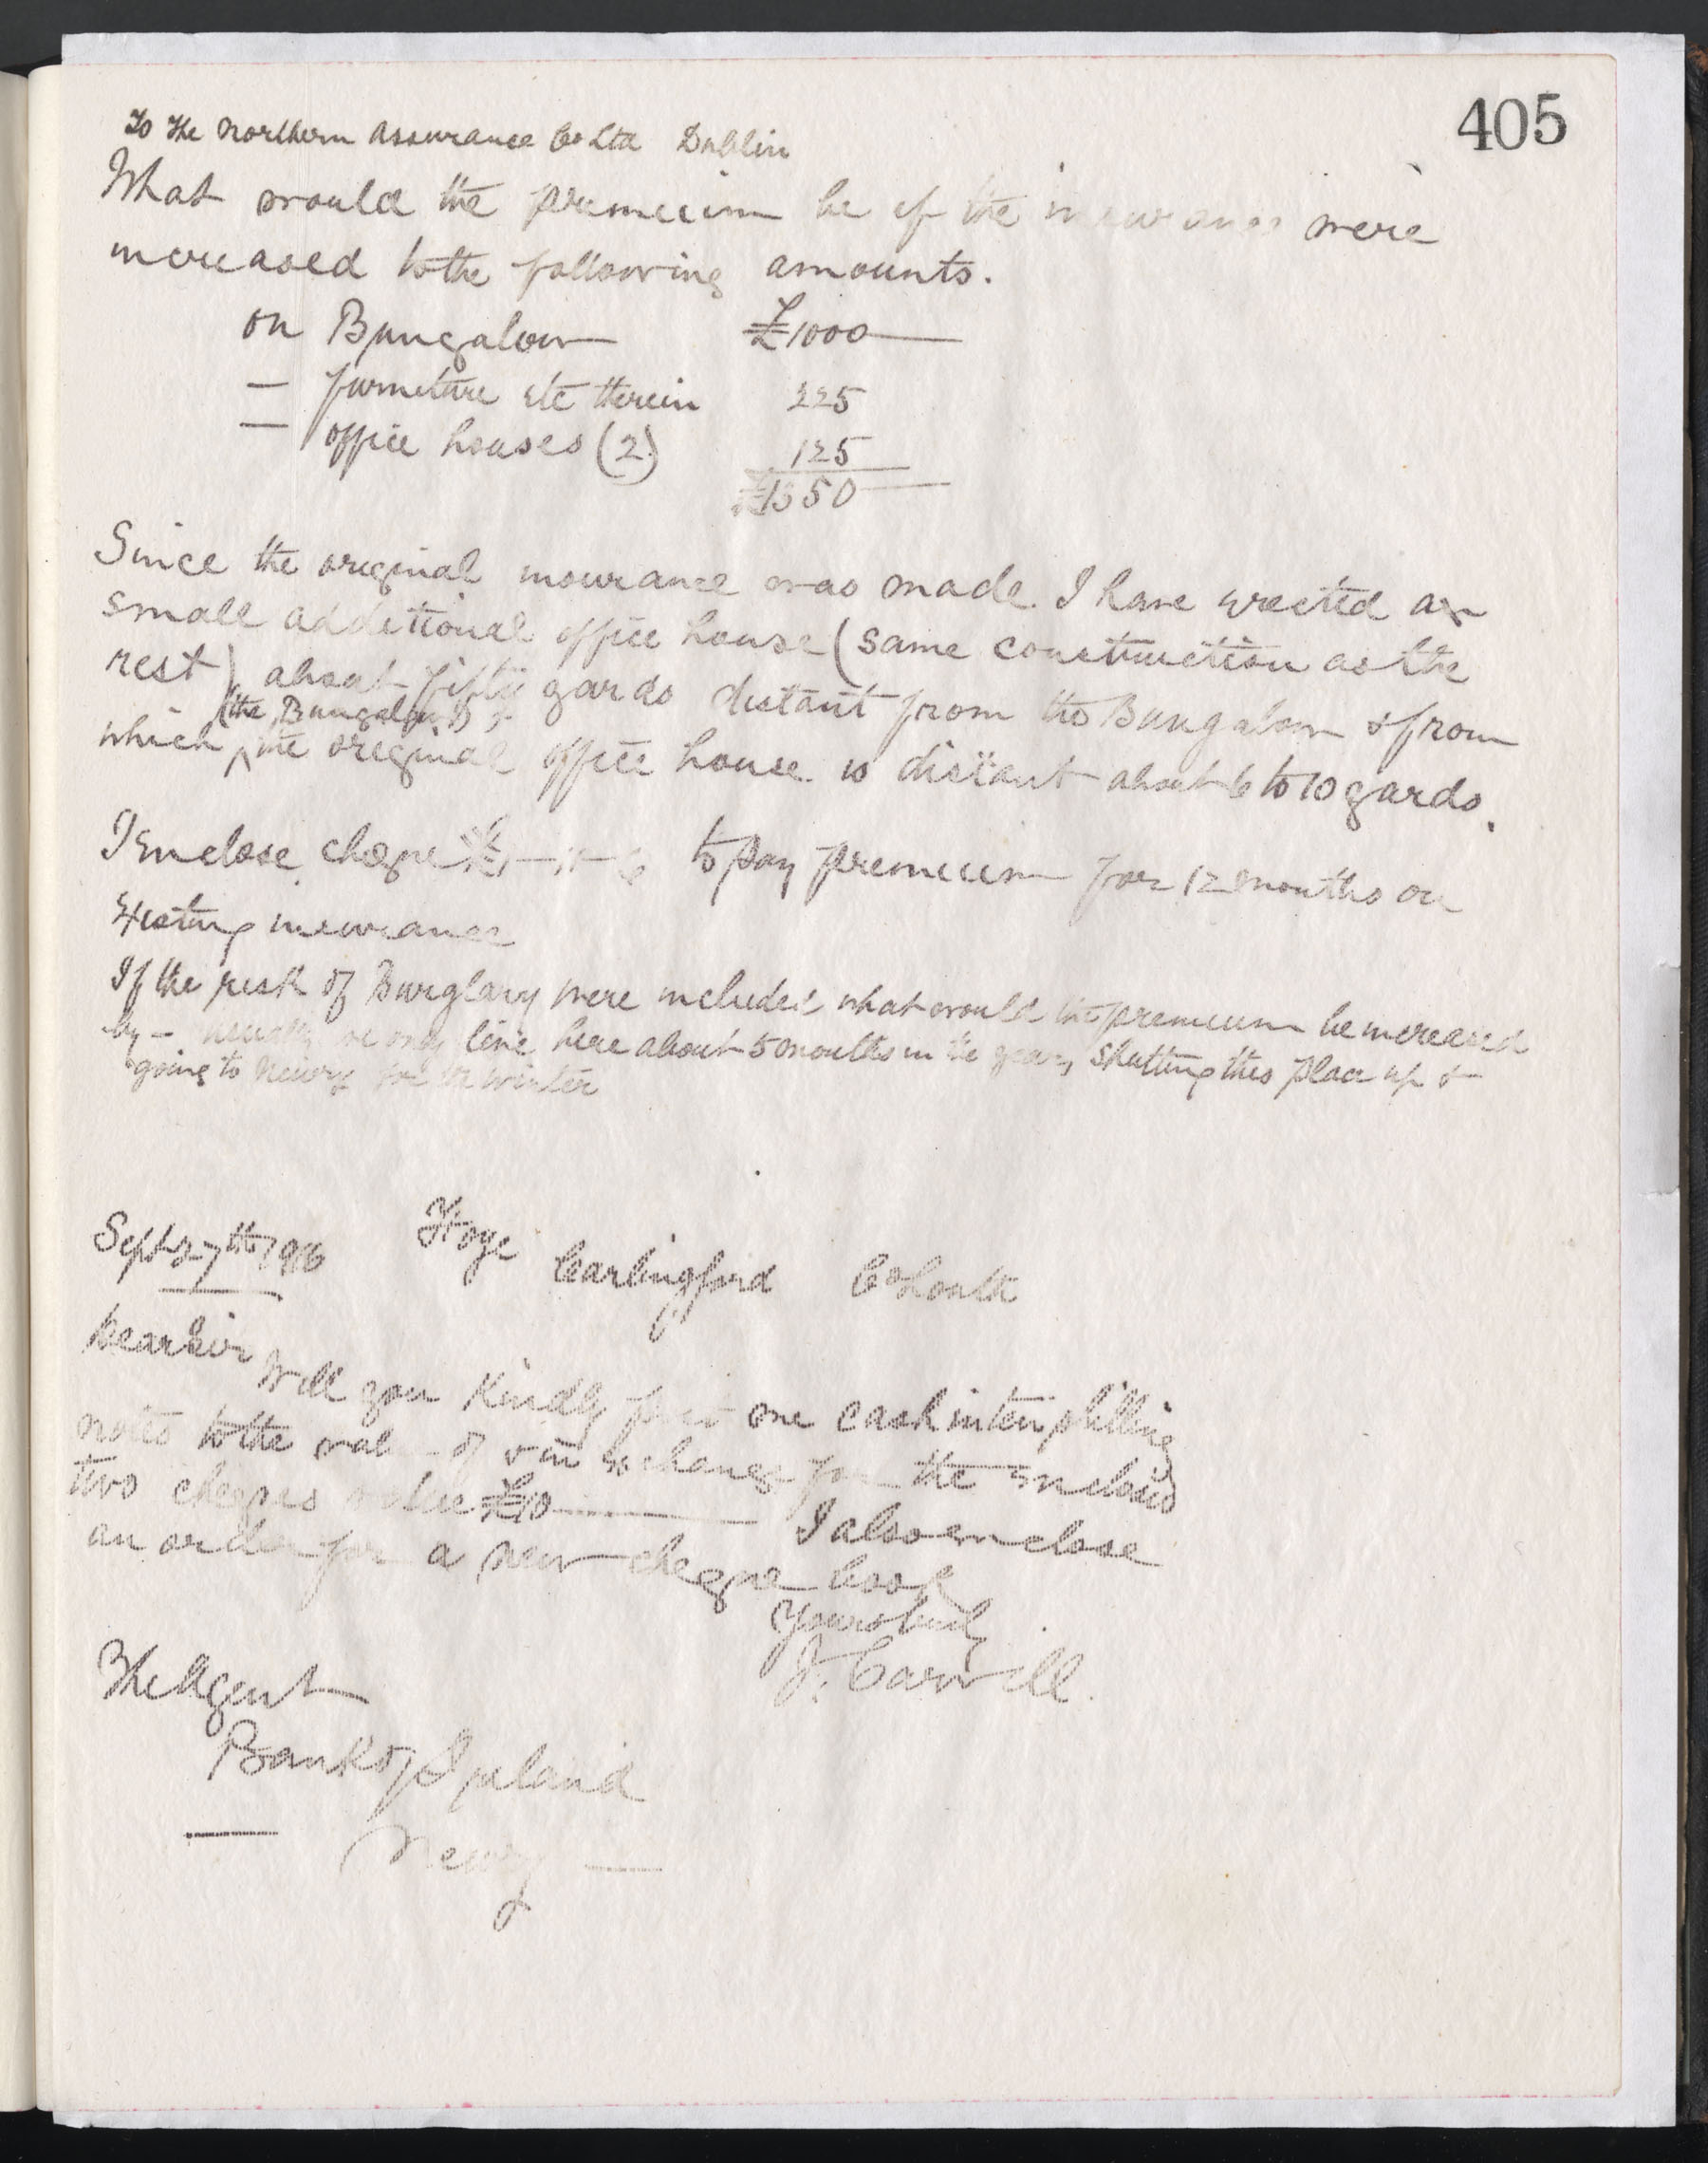 405
To the Northern Assurance Co Ltd Dublin
What would the premium be if the insurances were
increased to the following amounts.
on Bungalow £1000
— furniture etc therein 225
— office houses (2) 125
£1350
Since the original insurance was made I have erected a
small additional office house (same construction as the
rest) about fifty yards distant from the Bungalow & from
which (the Bungalow) the original office house is distant about 6 to 10 yards.
I Enclose cheque £ to pay premium for 12 months on
Existing insurance
If the risk of Burglary were included what would the premium be increased
by – usually we only live here about 5 months in the year, shutting this place up &
going to Newry for the winter
Sept 27th 1916 Carlingford Co Louth
Dear Sir
Will you Kindly me cash in ten shilling
notes to the value of in Exchange for the Enclosed
two cheques value £10 I also enclose
an order for a new cheque book
Yours truly
J. Carvill.
The Agent
Bank of Ireland
— Newry —